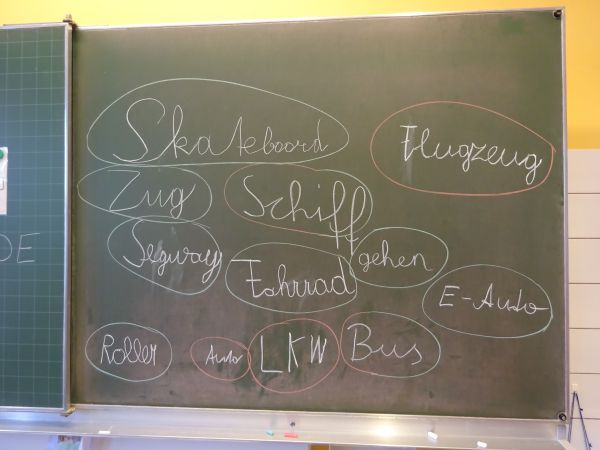 Skateboard
Flugzeug
Zug
Schiff
Segway
Fahrrad
gehen
E-Auto
Roller
Auto
LKW
Bus
DE